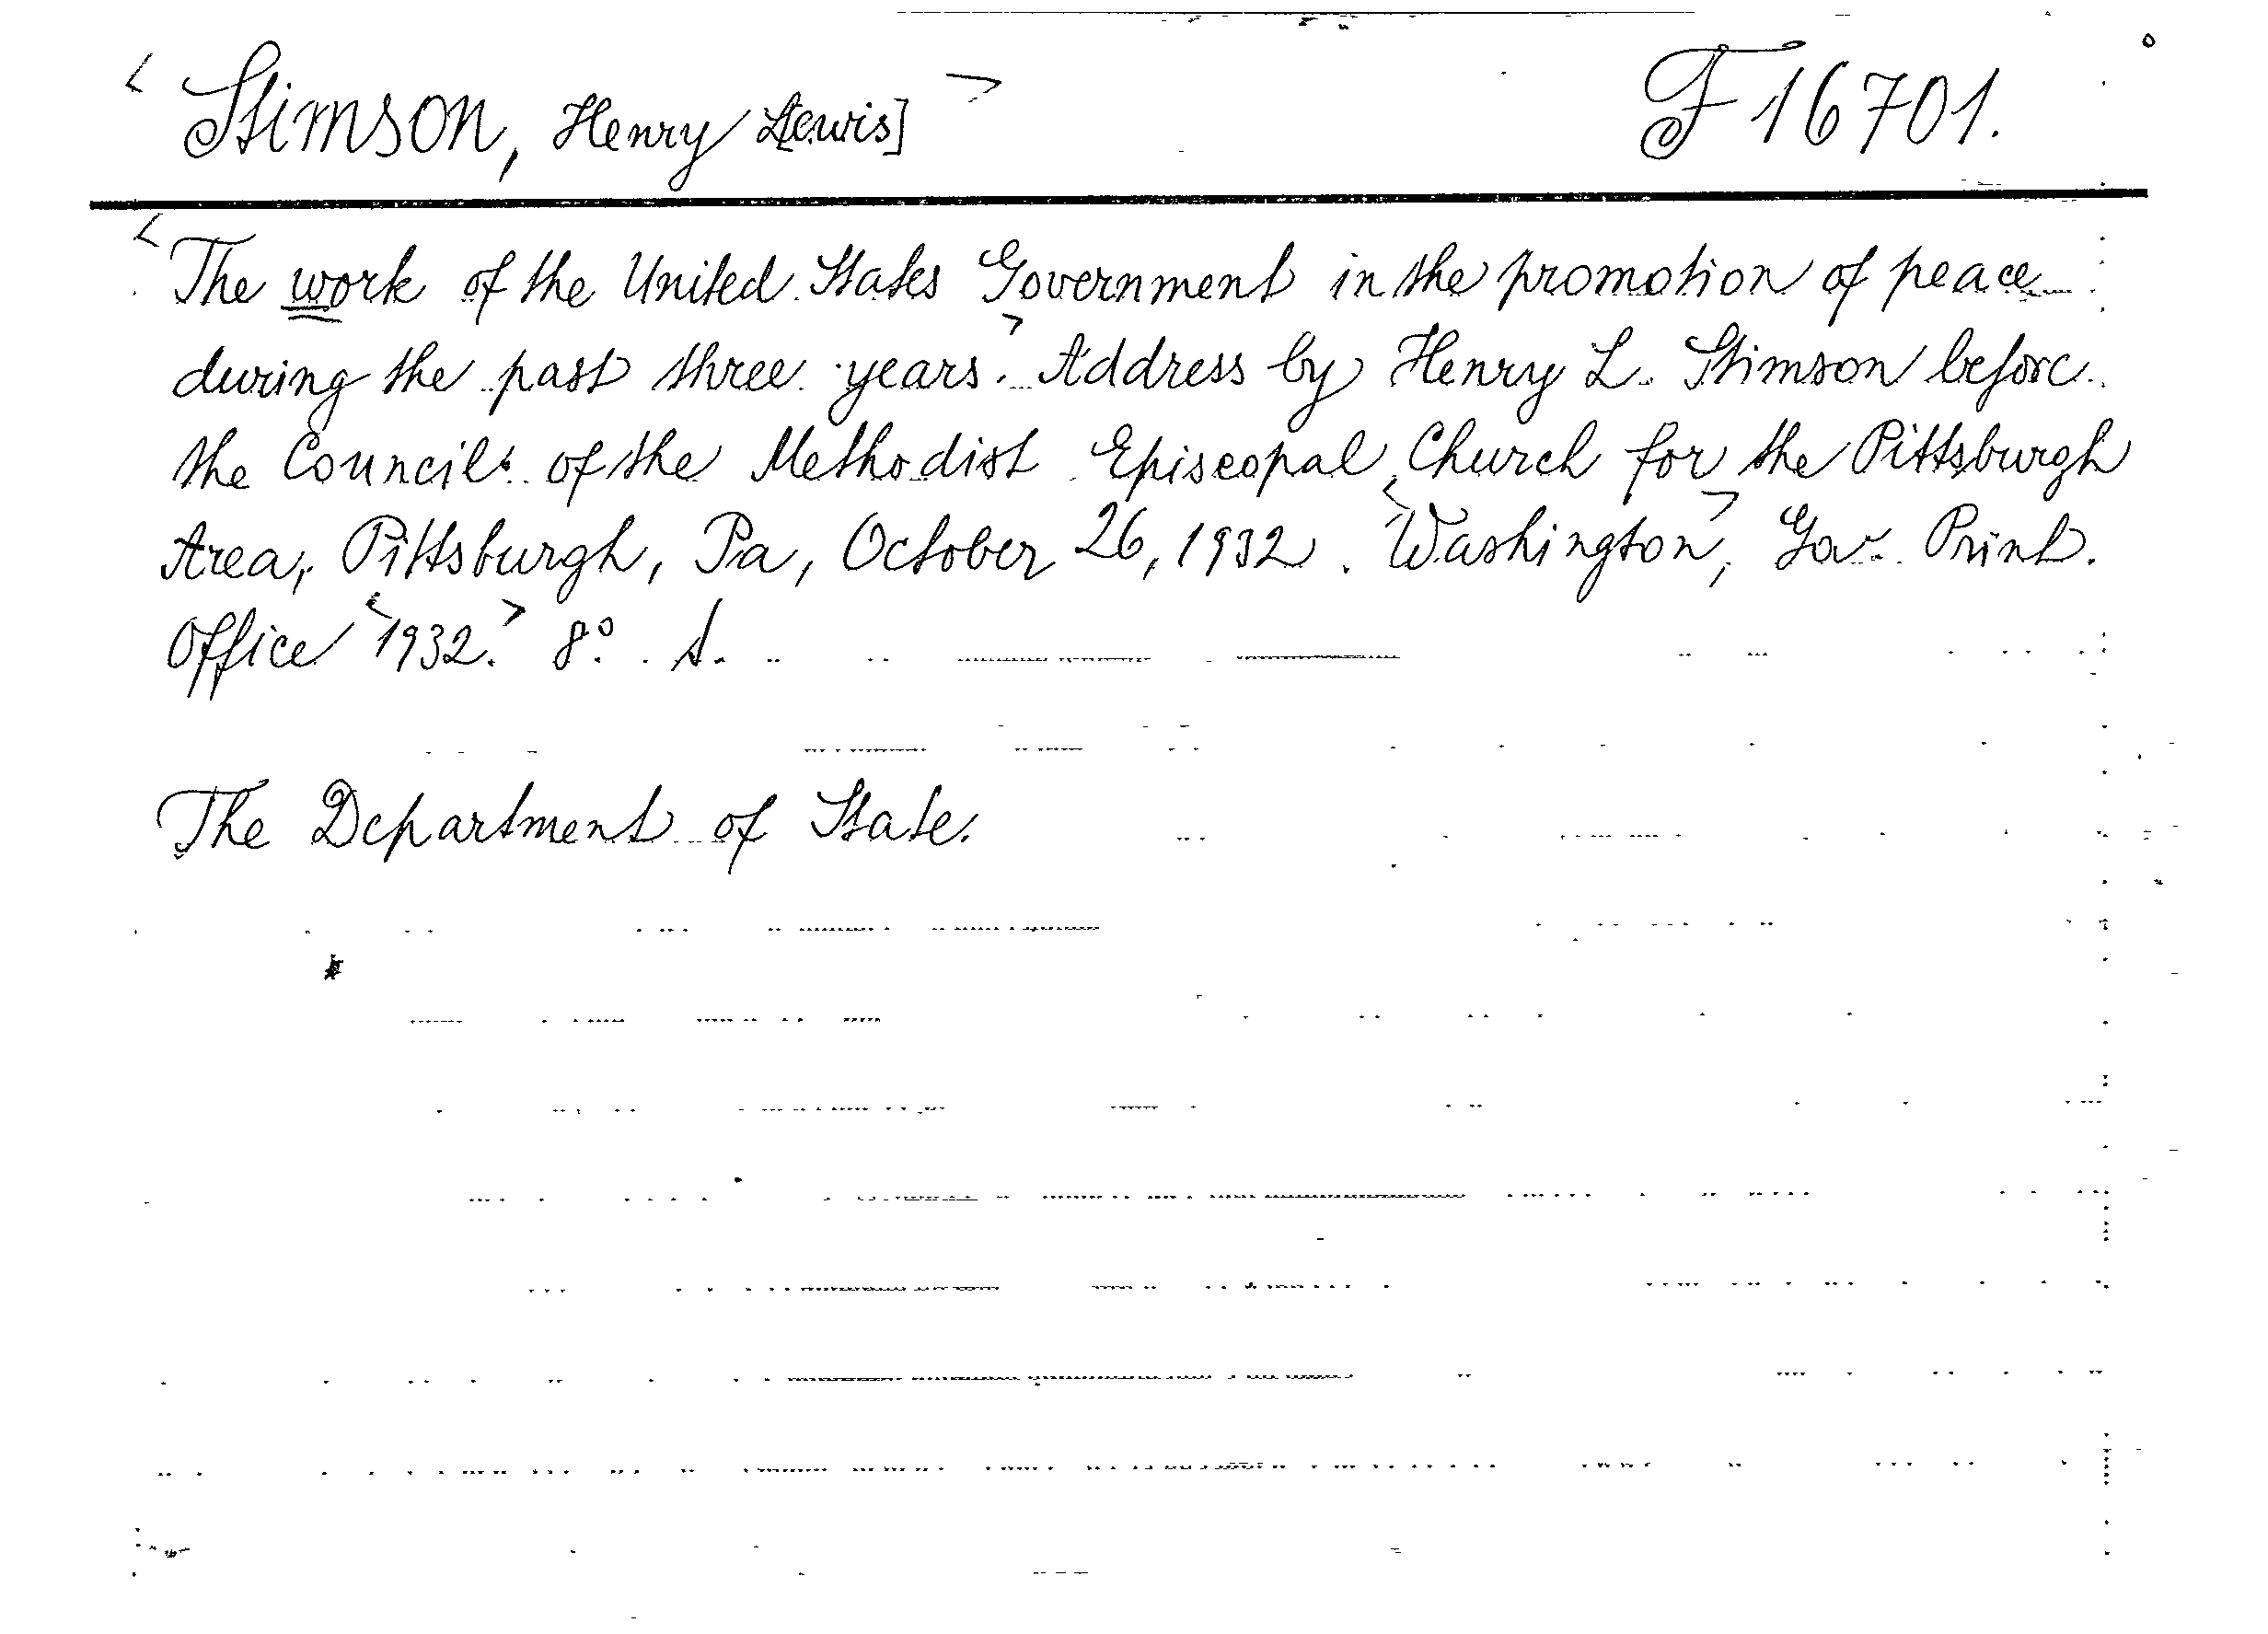 <Stimson, Henry L[ewis]> F 16701.
<The work of the United States Government in the promotion of peace
during the past three years.> Address by Henry L. Stimson before
the Councils of the Methodist Episcopal Church for the Pittsburgh
Area, Pittsburgh, Pa, October 26, 1932. <Washington>, Gov. Print.
Office <1932.> 8°. s.
The Department of State.